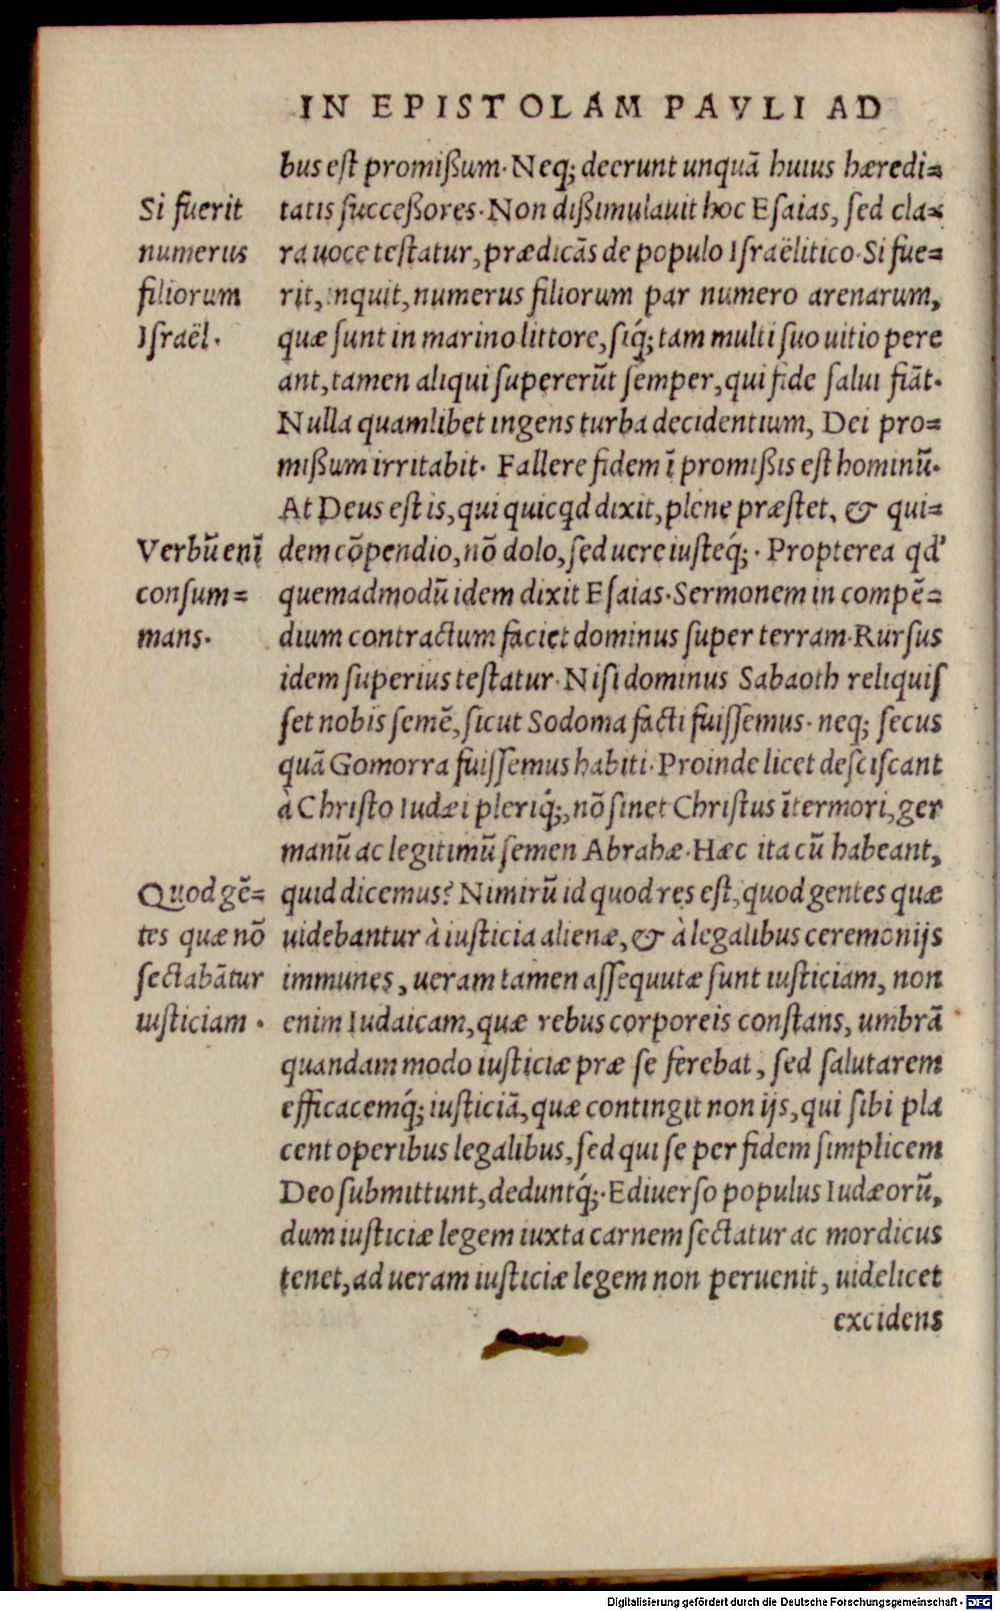 IN EPISTOLAM PAVLI AD
bus est promißum. Neq; deerunt unquā huius hæredi=
tatis succeßores. Non dißimulauit hoc Esaias, sed cla=
ra uoce testatur, prædicās de populo Israëlitico. Si fue=
rit, inquit, numerus filiorum par numero arenarum,
quæ sunt in marino littore, siq́; tam multi suo uitio pere
ant, tamen aliqui supererūt semper, qui fide salui fiāt.
Nulla quamlibet ingens turba decidentium, Dei pro=
mißum irritabit. Fallere fidem ī promißis est hominū.
At Deus est is, qui quicqd dixit, plene præstet, & qui=
dem cōpendio, nō dolo, sed uere iusteq́;. Propterea qd'
quemadmodū idem dixit Esaias. Sermonem in compē=
dium contractum faciet dominus super terram. Rursus
idem superius testatur. Nisi dominus Sabaoth reliquis
set nobis semē, sicut Sodoma facti fuissemus. neq; secus
quā Gomorra fuissemus habiti. Proinde licet desciscant
à Christo Iudæi pleriq́;, nō sinet Christus ītermori, ger
manū ac legitimū semen Abrahæ. Hæc ita cū habeant,
quid dicemus? Nimirū id quod res est, quod gentes quæ
uidebantur à iusticia alienæ, & à legalibus ceremonijs
immunes, ueram tamen assequutæ sunt iusticiam, non
enim Iudaicam, quæ rebus corporeis constans, umbrā
quandam modo iusticiæ præ se ferebat, sed salutarem
efficacemq́; iusticiā, quæ contingit non ijs, qui sibi pla
cent operibus legalibus, sed qui se per fidem simplicem
Deo submittunt, deduntq́;. E diuerso populus Iudæorū,
dum iusticiæ legem iuxta carnem sectatur ac mordicus
tenet, ad ueram iusticiæ legem non peruenit, uidelicet
excidens
Si fuerit
numerus
filiorum
Israël.
Verbū enī
consum=
mans.
Quod gē=
tes quæ nō
sectabātur
iusticiam.
Digitalisierung gefördert durch die Deutsche Forschungsgemeinschaft - DFG